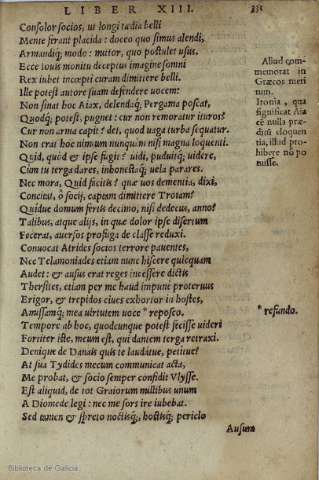 LIBER XIII.
Consolor socios, ut longi tædia belli
Mente ferant placida: doceo quo simus alendi,
Armandiq́; modo: mittor, quo postulet usus.
Ecce Iouis monitu deceptus imagine somni
Rex iubet incœpti curam dimittere belli.
Ille potest autore suam defendere uocem:
Non sinat hoc Aiax, delendaq́; Pergama poscat,
Quodq́; potest, pugnet: cur non remoratur ituros?
Cur non arma capit? det, quod uaga turba sequatur.
Non erat hoc nimium nunquam nisi magna loquenti.
Quid, quòd & ipse fugit? uidi, puduitq́; uidere,
Cùm tu terga dares, inhonestaq́; uela parares.
Nec mora, Quid facitis? quæ uos dementia, dixi,
Concitat, ô socij, captam dimittere Troiam?
Quidue domum fertis decimo, nisi dedecus, anno?
Talibus, atque alijs, in quæ dolor ipse disertum
Fecerat, auersos profuga de classe reduxi.
Conuocat Atrides socios terrore pauentes,
Nec Telamoniades etiam nunc hiscere quicquam
Audet: & ausus erat reges incessere dictis
Thersites, etiam per me haud impune proteruus
Erigor, & trepidos ciues exhortor in hostes,
Amissamq́; mea uirtutem uoce *reposco.
Tempore ab hoc, quodcunque potest fecisse uideri
Fortiter iste, meum est, qui dantem terga retraxi.
Denique de Danais quis te laudatue, petitue?
At sua Tydides mecum communicat acta,
Me probat, & socio semper confidit Vlysse.
Est aliquid, de tot Graiorum millibus unum
A Diomede legi: nec me sors ire iubebat.
Sed tamen & spreto noctisq́;, hostisq́; periclo
Ausum
Aliud commemorat
in
Græcos meritum.
Ironia, qua
significat Aiacē
nulla prædictū
eloquentia,
illud prohibere
nō potuisse.
*refundo.
Biblioteca de Galicia